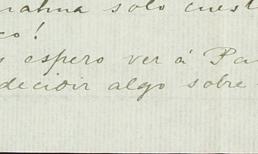 solo cuest
co!
espero ver á Pa
decidir algo sobre